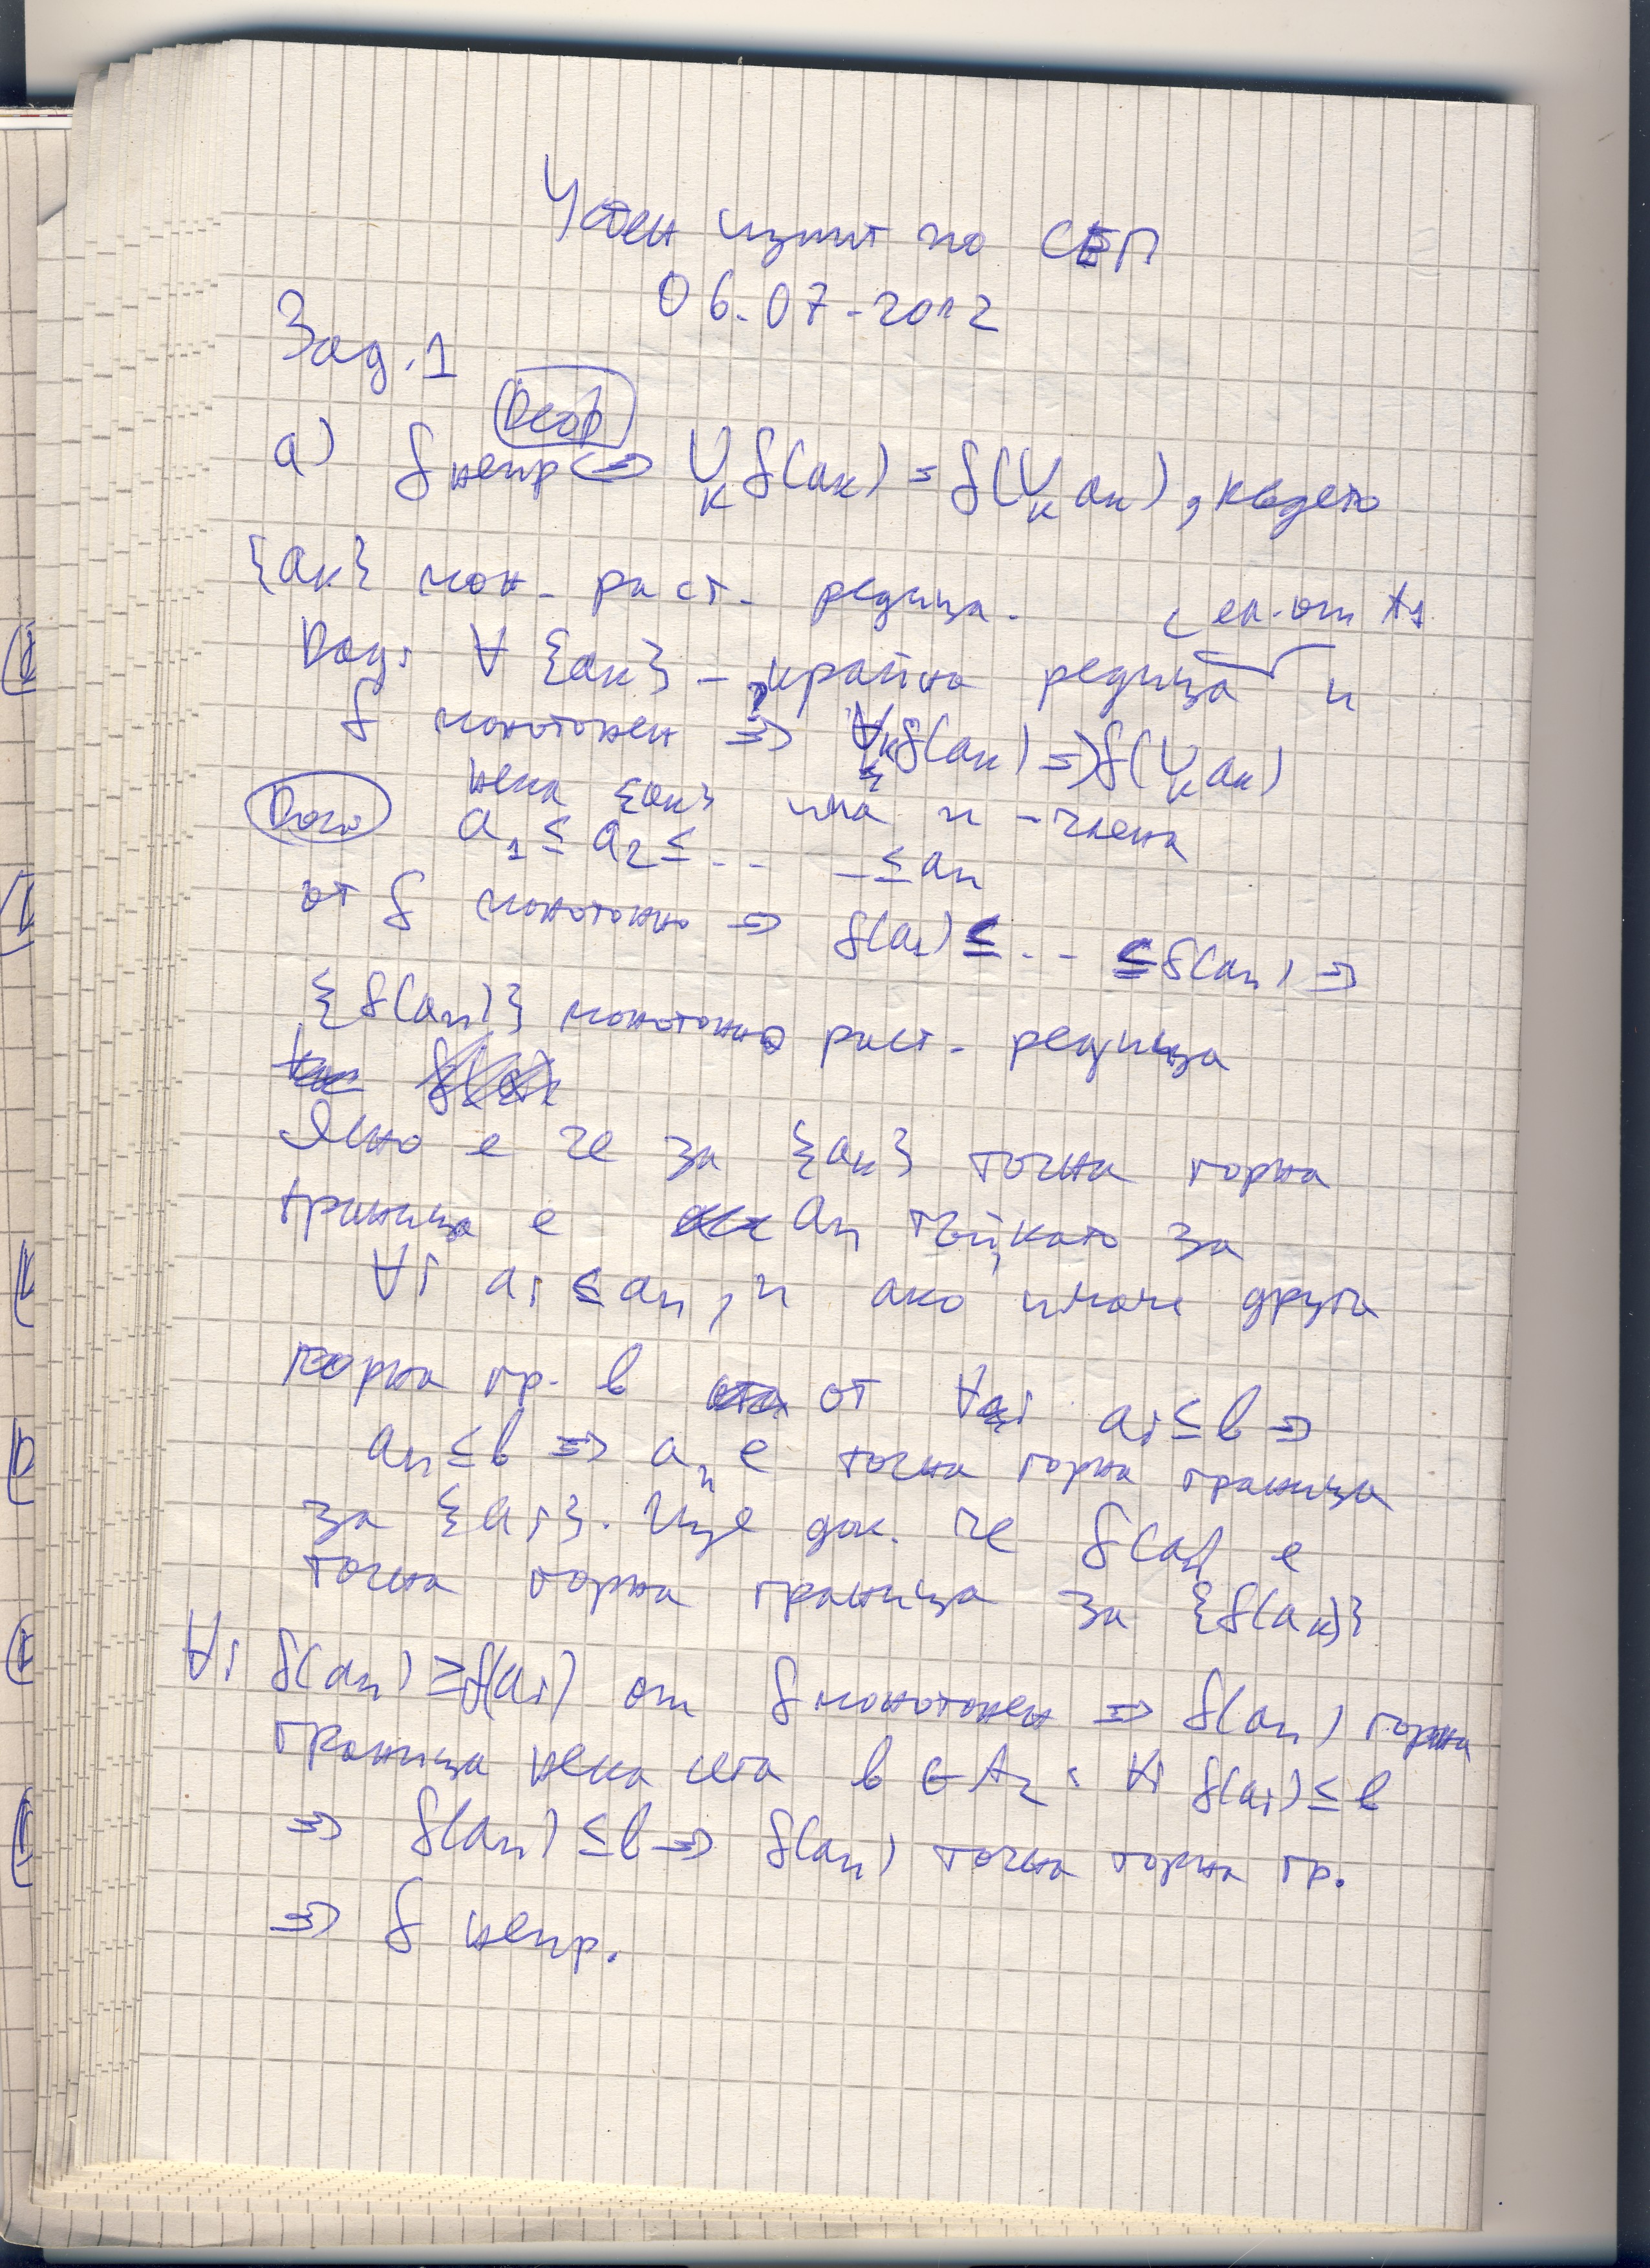 Устен изпит по СЕП
06.07.2012
Зад. 1
Деф
а) f непр <=> ∪ₖ f(aₖ) = f(∪ₖ aₖ), където
{aₖ} мон. раст. редица.
с ел-ти от A₁
∀ {aₖ} - крайна редица и
f монотонен => f(aₖ) = f(∪ₖ aₖ)
нека {aₖ} има n - члена
Док.
a₁ ≤ a₂ ≤ ... ≤ aₙ
от f монотонно => f(a₁) ≤ ... ≤ f(aₙ) =>
{f(aₙ)} монотонно раст. редица
Ясно е че за {aₖ} точна горна
граница е aₙ тъй като за
∀i aᵢ ≤ aₙ, и ако имаме друга
горна гр. b от ∀i aᵢ ≤ b =>
aₙ ≤ b => aₙ е точна горна граница
за {aᵢ}. Ще док. че f(aₙ) е
точна горна граница за {f(aₖ)}
∀i f(aₙ) ≥ f(aᵢ) от f монотонен => f(aₙ) горна
граница нека сега b ∈ A₂ : ∀i f(aᵢ) ≤ b
=> f(aₙ) ≤ b => f(aₙ) точна горна гр.
=> f непр.